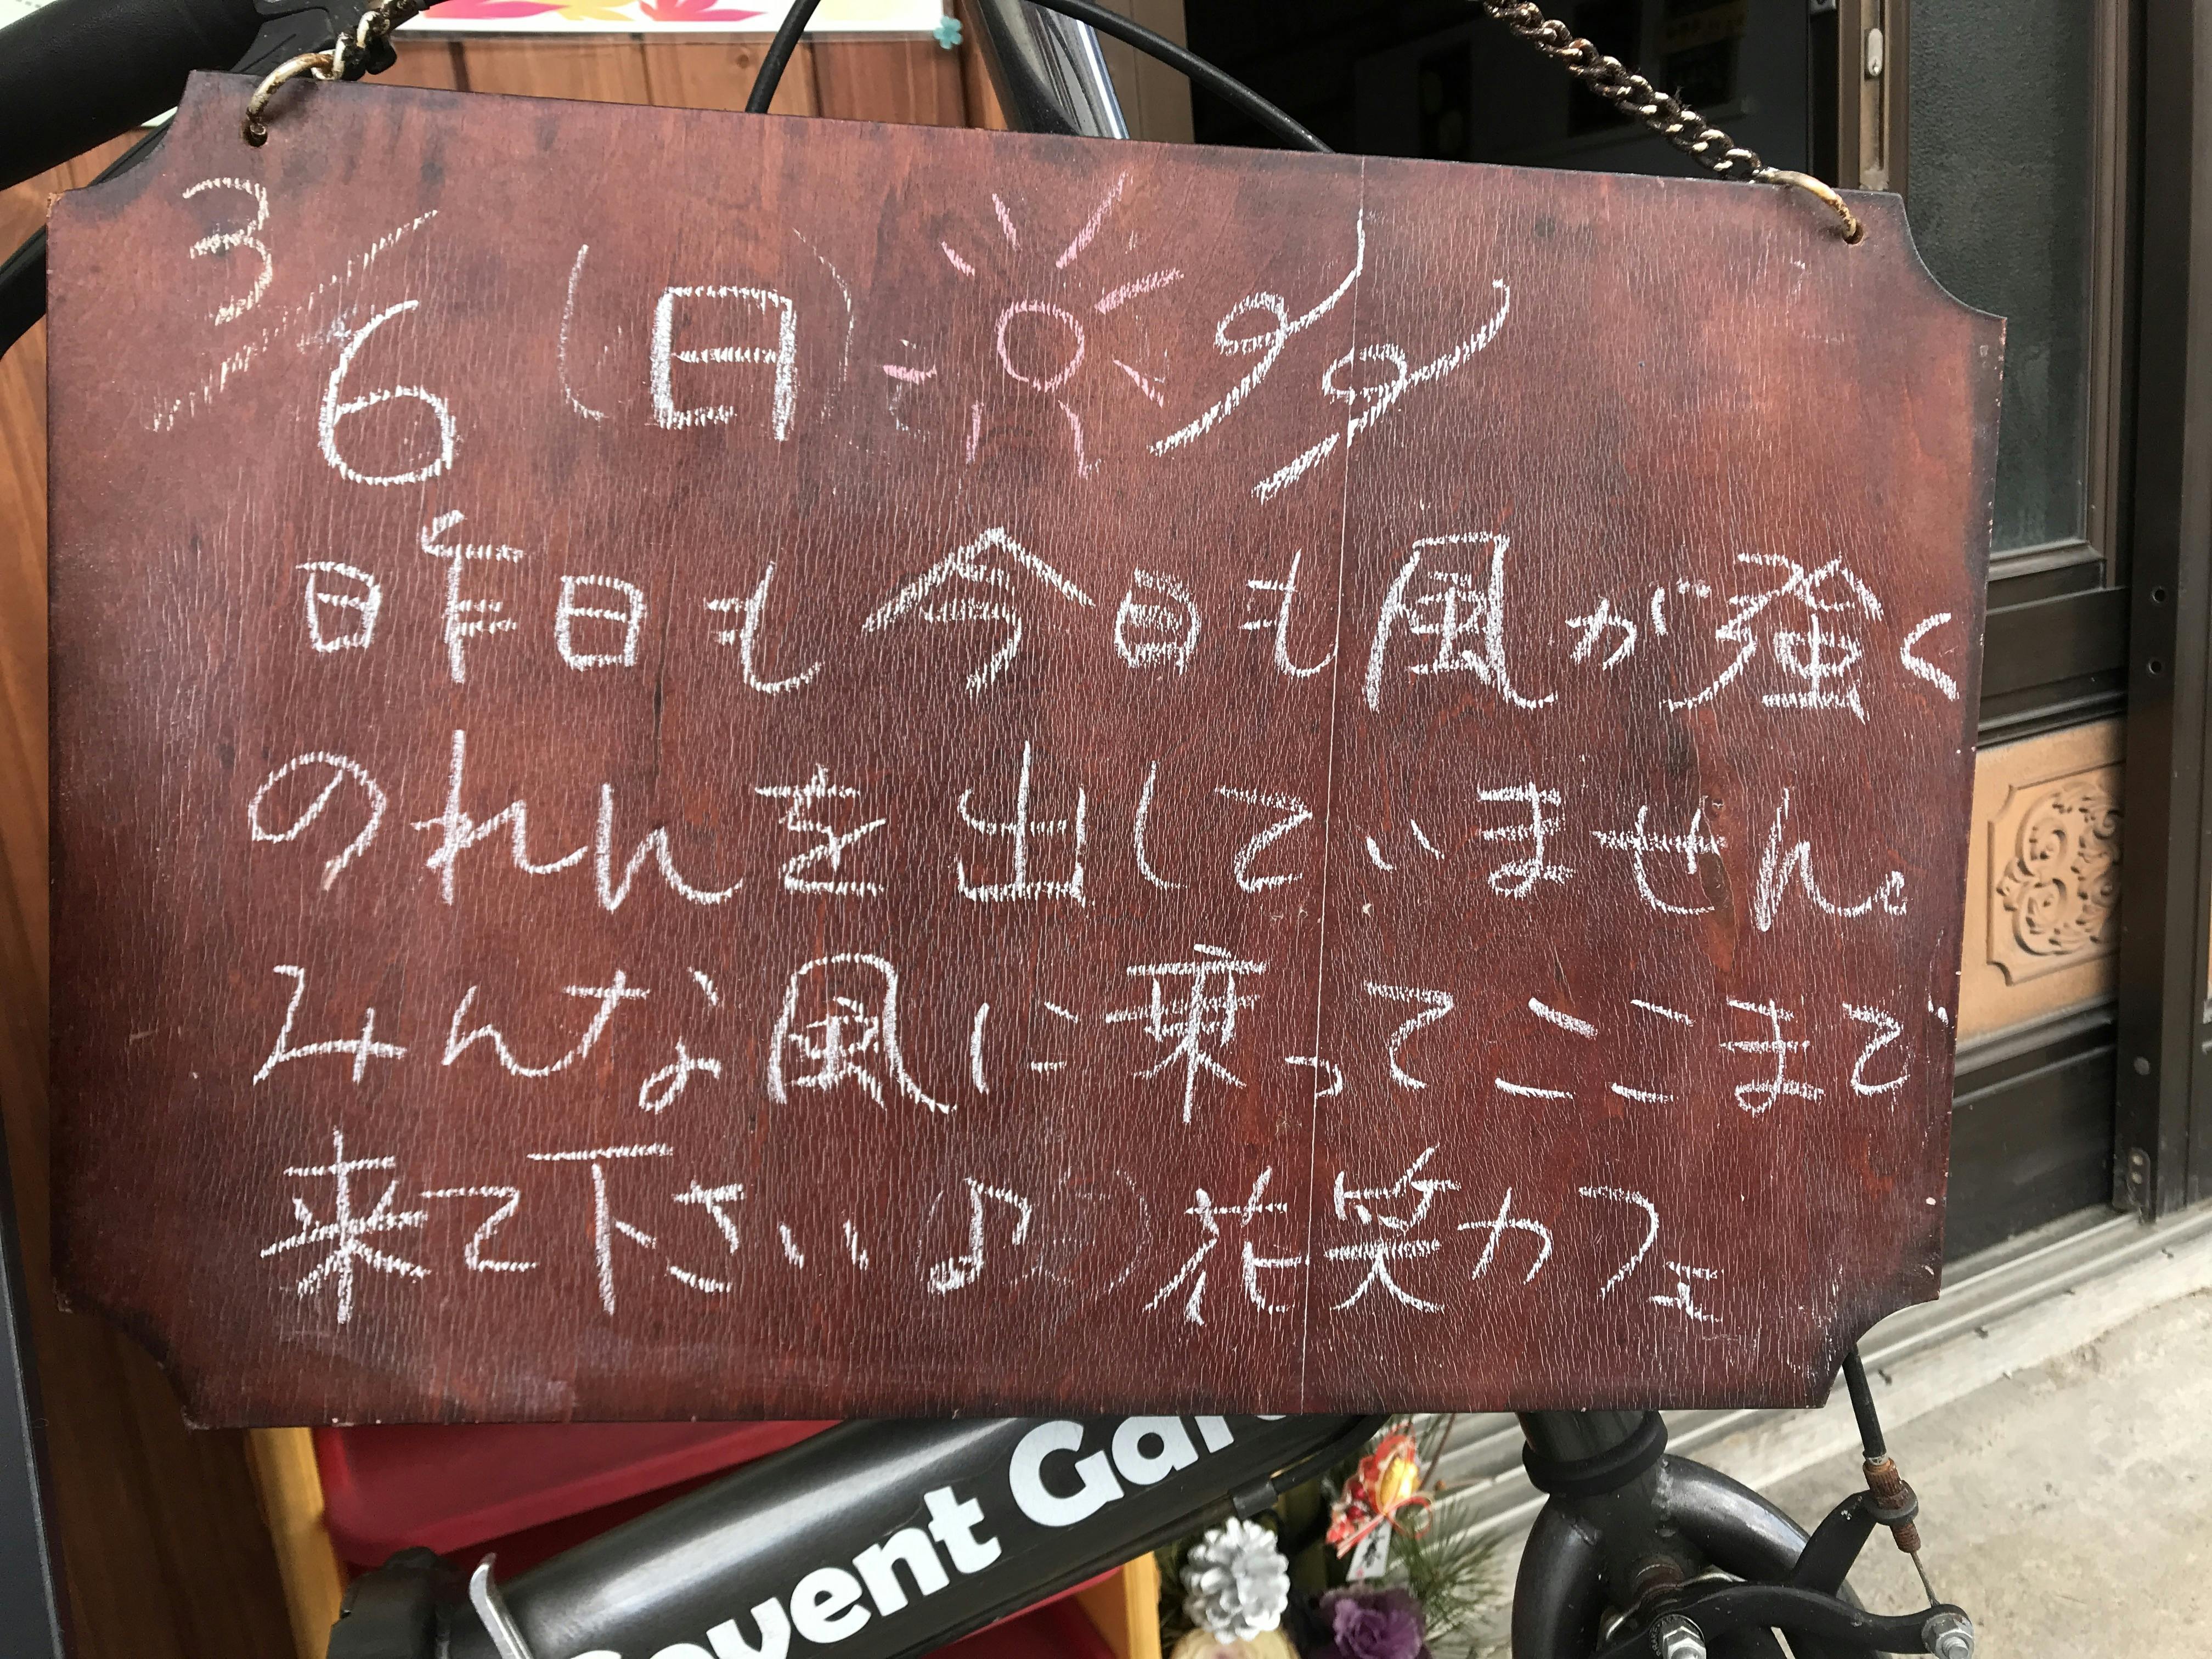 3/6(日)
昨日も今日も風が強く
のれんを出していません。
みんな風に乗ってここまで
来て下さい♪ 花笑カフェ
ovent Gar